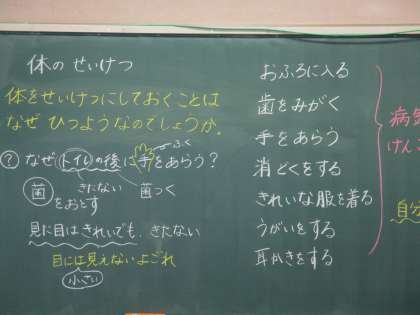 体の せいけつ
体をせいけつにしておくことは
なぜ ひつようなのでしょうか。
? なぜトイレの後に手をあらう?
ふく
きたない
菌をおとす
菌つく
見た目はきれいでも、きたない
目には見えないよごれ
小さい
おふろに入る
歯をみがく
手をあらう
消どくをする
きれいな服を着る
うがいをする
耳かきをする
病気
けんこ
自分